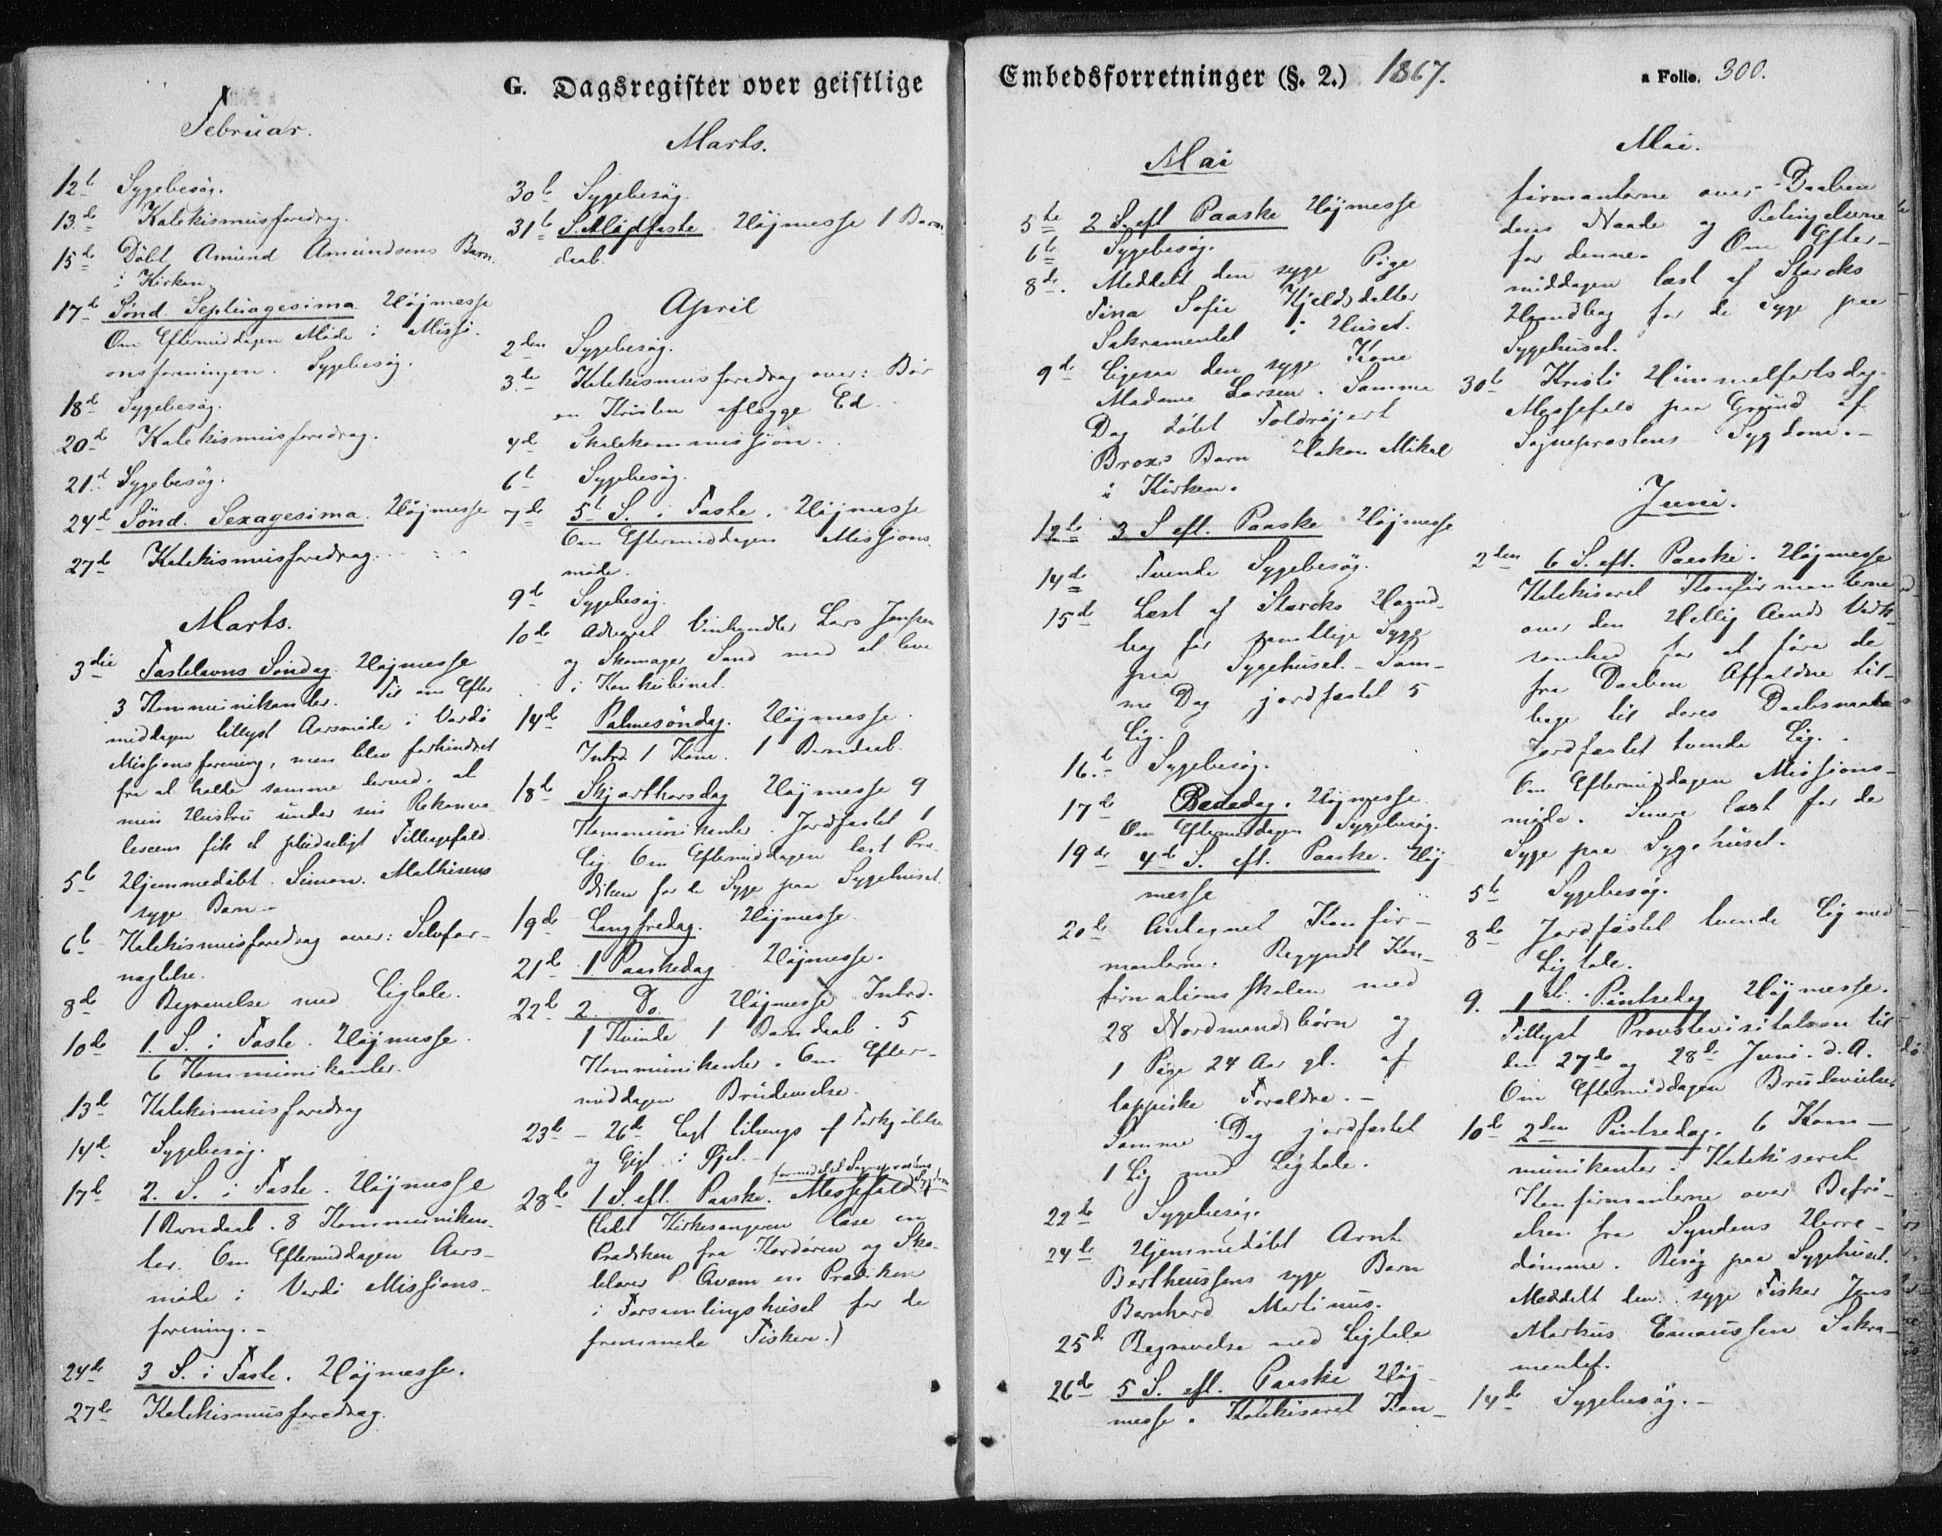 G. Dagsregister over geistlige
Februar.
12te Sygebesøg.
13de Katekismusforedrag.
15de Döbt Amund Amundsens Barn
i Kirken
17de Sönd. Septuagesima Höjmesse
Om Eftermiddagen Möde i Missi-
onsforeningen. Sygebesög.
18de Sygebesög.
20de Katekismusforedrag.
21de Sygebesög.
24de Sönd. Sexagesima. Höjmesse
27de Katekismusforedrag.
Marts.
3die Fastelavns Söndag. Höjmesse
3 Kommunikanter. Til om Efter
middagen tillyst Aarsmöde i Vardö
Missionsforening, men blev forhindret
fra at holde samme derved, at
min Hustru under sin Rekonva
lescens fik et pludseligt Tilbagefald.
5te Hjemmedöbt Simon Mathisens
syge Barn.-
6te Katekismusforedrag over: Selvfor-
nægtelse.
8de Begravelse med Ligtale.
10de 1. S. i Faste. Höjmesse.
6 Kommunikanter.
13de Katekismusforedrag
14de Sygebesög.
17de 2. S. i Faste. Höjmesse
1 Barndaab. 8 Kommunikan-
ter. Om Eftermiddagen Aars-
möde i Vardö Missions-
forening.-
24de 3 S. i Faste. Höjmesse.
27de Katekismusforedrag.
Marts.
30te Sygebesög.
31te S. Midfaste. Höjmesse 1 Barn
daab.
April
2den Sygebesög.
3die Katekismusforedrag over: Bör
en Kristen aflægge Ed.
4de Skolekommission.
6te Sygebesög.
7de 5te S. i Faste. Höjmesse
Om Eftermiddagen Missions
möde.
9de Sygebesög.
10de Advaret Lars Jensen
og Skomager Sand med at leve
i Konkubinat.
14de Palmesöndag. Höjmesse.
Introd. 1 Kone. 1 Barndaab.
18de Skjærthorsdag Höjmesse 9
Kommunikanter. Jordfæstet 1
Lig. Om Eftermiddagen læst Præ-
diken for de Syge paa Sygehuset.
19de Langfredag. Höjmesse.
21de 1 Paaskedag Höjmesse.
22de 2. Do Höjmesse Introd.
1 Kvinde 1 Barndaab. 5
Kommunikanter. Om Efter-
middagen Brudevielse.
23de - 26de Lagt tilsengs af Forkjölelse
og Gigt i Øjet.-
formedelst Sogneprestens Sygdom
28de 1 S. eft. Paaske. Messefald
(Lod Kirkesangeren læse en
Prædiken fra Kordören og Sko-
lelærer P. Qvam en Prædiken
i Forsamlingshuset for de
fremmede Fiskere.)
Embedsforretninger (§. 2.) 1867.
a Folio. 300.
Mai
5te 2 S. eft Paaske Höjmesse
6te Sygebesög.
8de. Meddelt den syge Pige
Tina Sofie Kjeldsdatter
Sakramentet i Huset.
9de Ligesaa den syge Kone
Madame Larsen. Samme
Dag döbt Toldrojert
Brox's Barn Hakon Mikal
i Kirken.
12te 3 S eft. Paaske Höjmesse
14de Tvende Sygebesög.
15de Læst af Starcks Haand-
bog for samtlige Syge
paa Sygehuset.- Sam-
me Dag jordfæstet 5
Lig.
16.de Sygebesög.
17de Bededag. Höjmesse
Om Eftermiddagen Sygebesög.
19de 4de S. eft. Paaske. Höj
messe
20de Antegnet Konfir-
manterne. Begyndt Kon-
firmationsskolen med
28 Nordmandsbörn og
1 Pige 24 Aar gl. af
lappiske Foreldre.-
Samme Dag jordfæstet
1 Lig med Ligtale.
22de Sygebesög.
24de Hjemmedöbt Arnt
Bertheussens syge Barn
Bernhard Martinus.
25de Begravelse med Ligtale
26de 5 S. eft. Paaske Höj-
messe. Katekiseret Kon-
Mai.
firmanterne over Daaben
dens Naade og Betingelserne
for denne. Om Efter-
middagen læst af Starcks
Haandbog for de Syge paa
Sygehuset.
30te Kristi Himmelfartsdag.
Messefald paa Grund af
Sogneprestens Sygdom.-
Juni.
2den 6 S. eft. Paaske. Höjmesse
Katekiseret Konfirmanterne
over den Hellig Aands Virk-
somhed for at före de
fra Daaben Affaldne til-
bage til deres Daabsnaade
Jordfæstet tvende Lig.
Om Eftermiddagen Missions-
möde. Senere læst for de
Syge paa Sygehuset.
5te Sygebesög.
8de Jordfæstet tvende Lig med
Ligtale.
9. 1ste Pintsedag Höjmesse.
Tillyst Provstevisitatsen til
den 27de og 28de Juni. d. A.
Om Eftermiddagen Brudevielse
10de 2den Pintsedag. 6 Kom-
munikanter. Katekiseret
Konfirmanterne over Befri-
elsen fra Syndens Herre-
dömme. Besög paa Sygehuset.
Meddelt den syge Fisker Jens
Markus Emaussen Sakra-
mentet.
14de Sygebesög.-